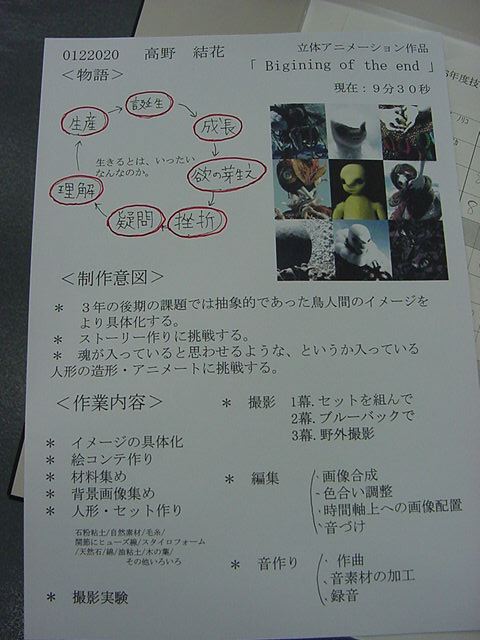 0122020 高野 結花 立体アニメーション作品
「 Bigining of the end 」
現在：9分30秒
＜物語＞
誕生
成長
欲の芽生え
挫折
疑問
理解
生産
生きるとは、いったい
なんなのか。
＜制作意図＞
＊ 3年の後期の課題では抽象的であった鳥人間のイメージを
より具体化する。
＊ ストーリー作りに挑戦する。
＊ 魂が入っていると思わせるような、というか入っている
人形の造形・アニメートに挑戦する。
＜作業内容＞
＊ イメージの具体化
＊ 絵コンテ作り
＊ 材料集め
＊ 背景画像集め
＊ 人形・セット作り
石粉粘土/自然素材/毛糸/
関節にヒューズ線/スタイロフォーム
/天然石/綿/油粘土/木の葉/
その他いろいろ
＊ 撮影実験
＊ 撮影 1幕.セットを組んで
2幕.ブルーバックで
3幕.野外撮影
＊ 編集 画像合成
色合い調整
時間軸上への画像配置
音づけ
＊ 音作り 作曲
音素材の加工
録音